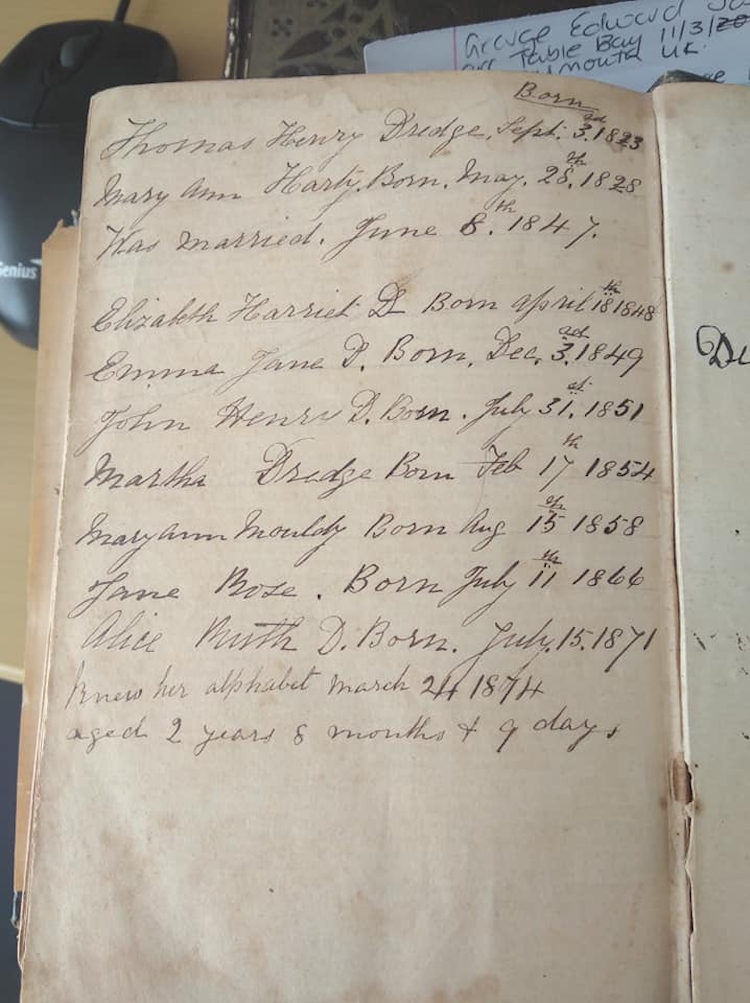 Genius
George Edward
Table Bay 11/3/20
mouth UK
Born
Thomas Henry Dredge, Sept: 3.rd 1823
Mary Ann Harty. Born. May. 28.th 1828
Was married. June 8.th 1847.
Elizabeth Harriet D Born april 18th 1848
Emma Jane D. Born. Dec. 3.rd 1849
John Henry D. Born. July 31.st 1851
Martha Dredge Born Feb 17th 1854
Mary ann Mouldy Born Aug 15th 1858
Jane Rose. Born July 11th 1866
Alice Ruth D. Born. July. 15. 1871
Knew her alphabet march 24 1874
aged 2 years 8 months & 9 days